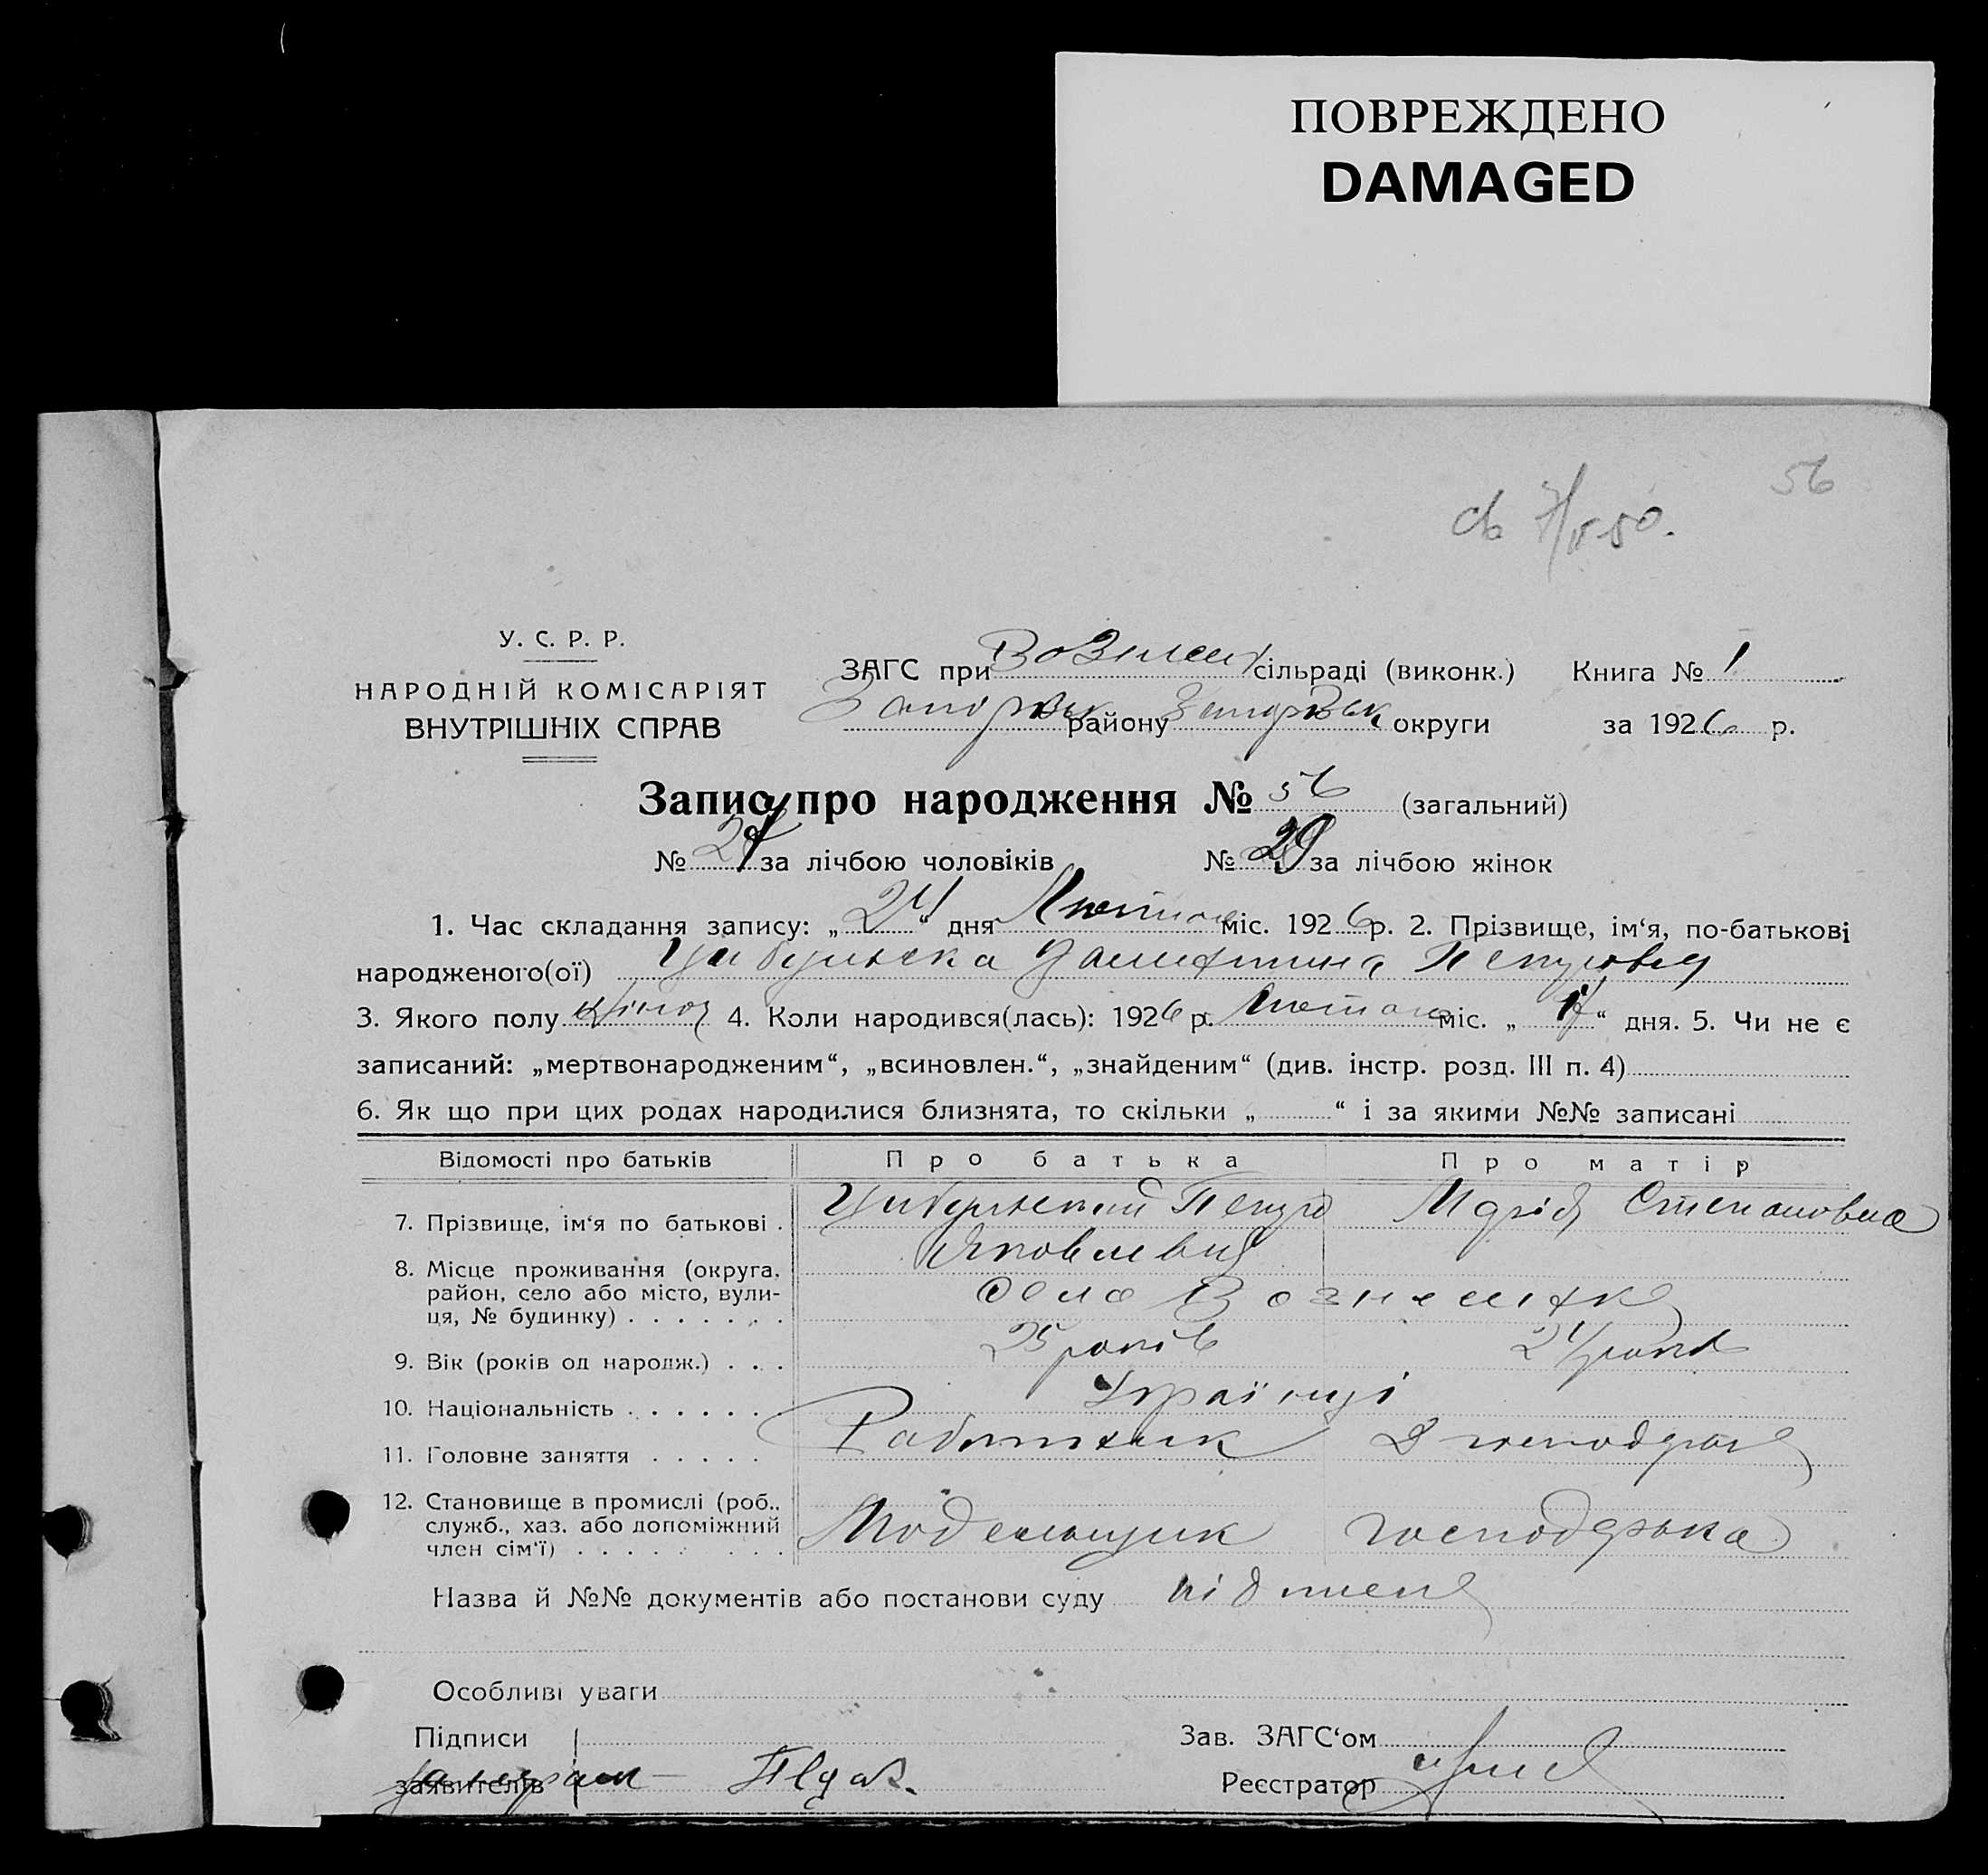 ПОВРЕЖДЕНО
DAMAGED
56
У. С. Р. Р.
НАРОДНІЙ КОМІСАРІЯТ
ВНУТРІШНІХ СПРАВ
ЗАГС при сільраді (виконк.) Книга № 1
району округи за 1926 р.
Запис про народження № 56 (загальний)
№ за лічбою чоловіків № 29 за лічбою жінок
1. Час складання запису: „24“ дня Лютого міс. 1926 р. 2. Прізвище, ім‘я, по-батькові
народженого(ої) Цибульска Петровна
3. Якого полу жіноч 4. Коли народився(лась): 1926 р. Лютого міс. „ “ дня. 5. Чи не є
записаний: „мертвонародженим“, „всиновлен.“, „знайденим“ (див. інстр. розд. III п. 4)
6. Як що при цих родах народилися близнята, то скільки „ “ і за якими №№ записані
Відомості про батьків Про батька Про матір
7. Прізвище, ім‘я по батькові . Цибульский Петро Марія Степановна
Яковлевич
8. Місце проживання (округа,
район, село або місто, вули-
ця, № будинку) . . . . . . . село Вознесенка
9. Вік (років од народж.) . . . 25 років 24 роки
10. Національність . . . . . . Українці
11. Головне заняття . . . . . Работник
12. Становище в промислі (роб.,
служб., хаз. або допоміжний
член сім‘ї) . . . . . . . . . Модельщик господарка
Назва й №№ документів або постанови суду
Особливі уваги
Підписи
заявителів
Зав. ЗАГС‘ом
Реєстратор